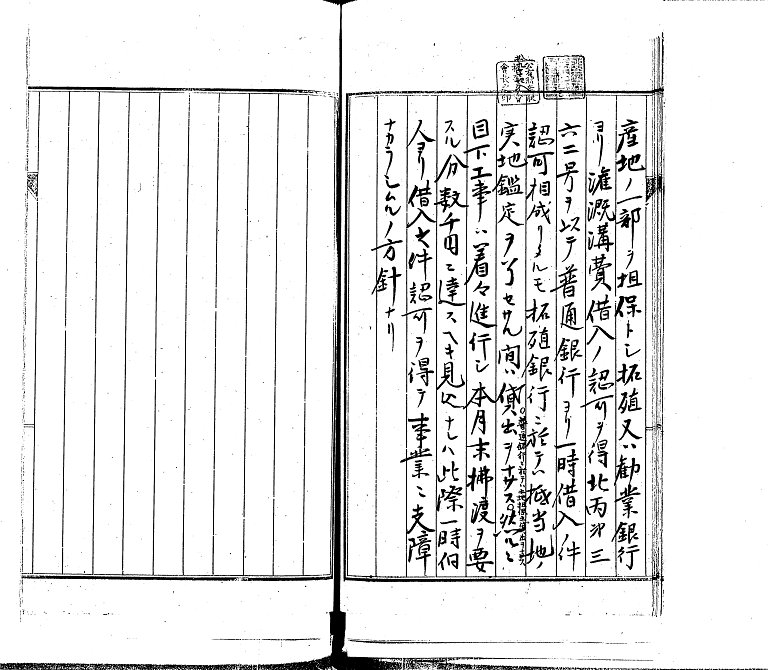 産地ノ一部ヲ担保トシ拓殖又ハ勧業銀行
ヨリ灌漑溝費借入ノ認可ヲ得北丙第三
六二号ヲ以テ普通銀行ヨリ一時借入ノ件
認可相成リタルモ拓殖銀行ニ於テハ抵当地ノ
実地鑑定ヲ了セサル間ハ貸出ヲナサス。然ルニ
目下工事ハ着々進行シ本月末拂渡ヲ要
スル分数千円ニ達スヘキ見込ナレハ此際一時個
人ヨリ借入ノ件認可ヲ得テ事業ニ支障
ナカラシムルノ方針ナリ